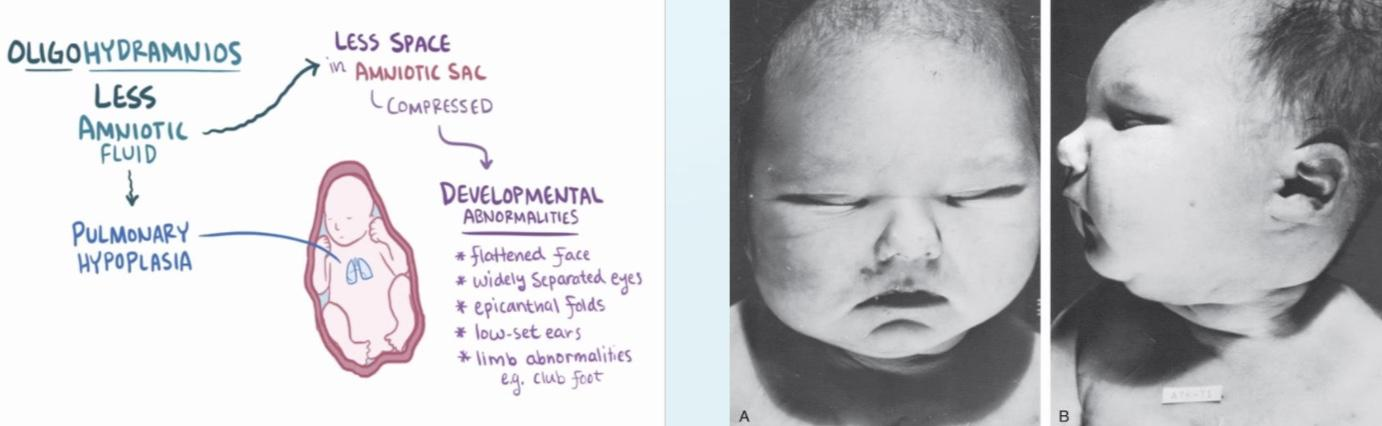 OLIGOHYDRAMNIOS
LESS
AMNIOTIC
FLUID
PULMONARY
HYPOPLASIA
LESS SPACE
in AMNIOTIC SAC
COMPRESSED
DEVELOPMENTAL
ABNORMALITIES
* flattened face
* widely separated eyes
* epicanthal folds
* low-set ears
* limb abnormalities
e.g. club foot
A
B